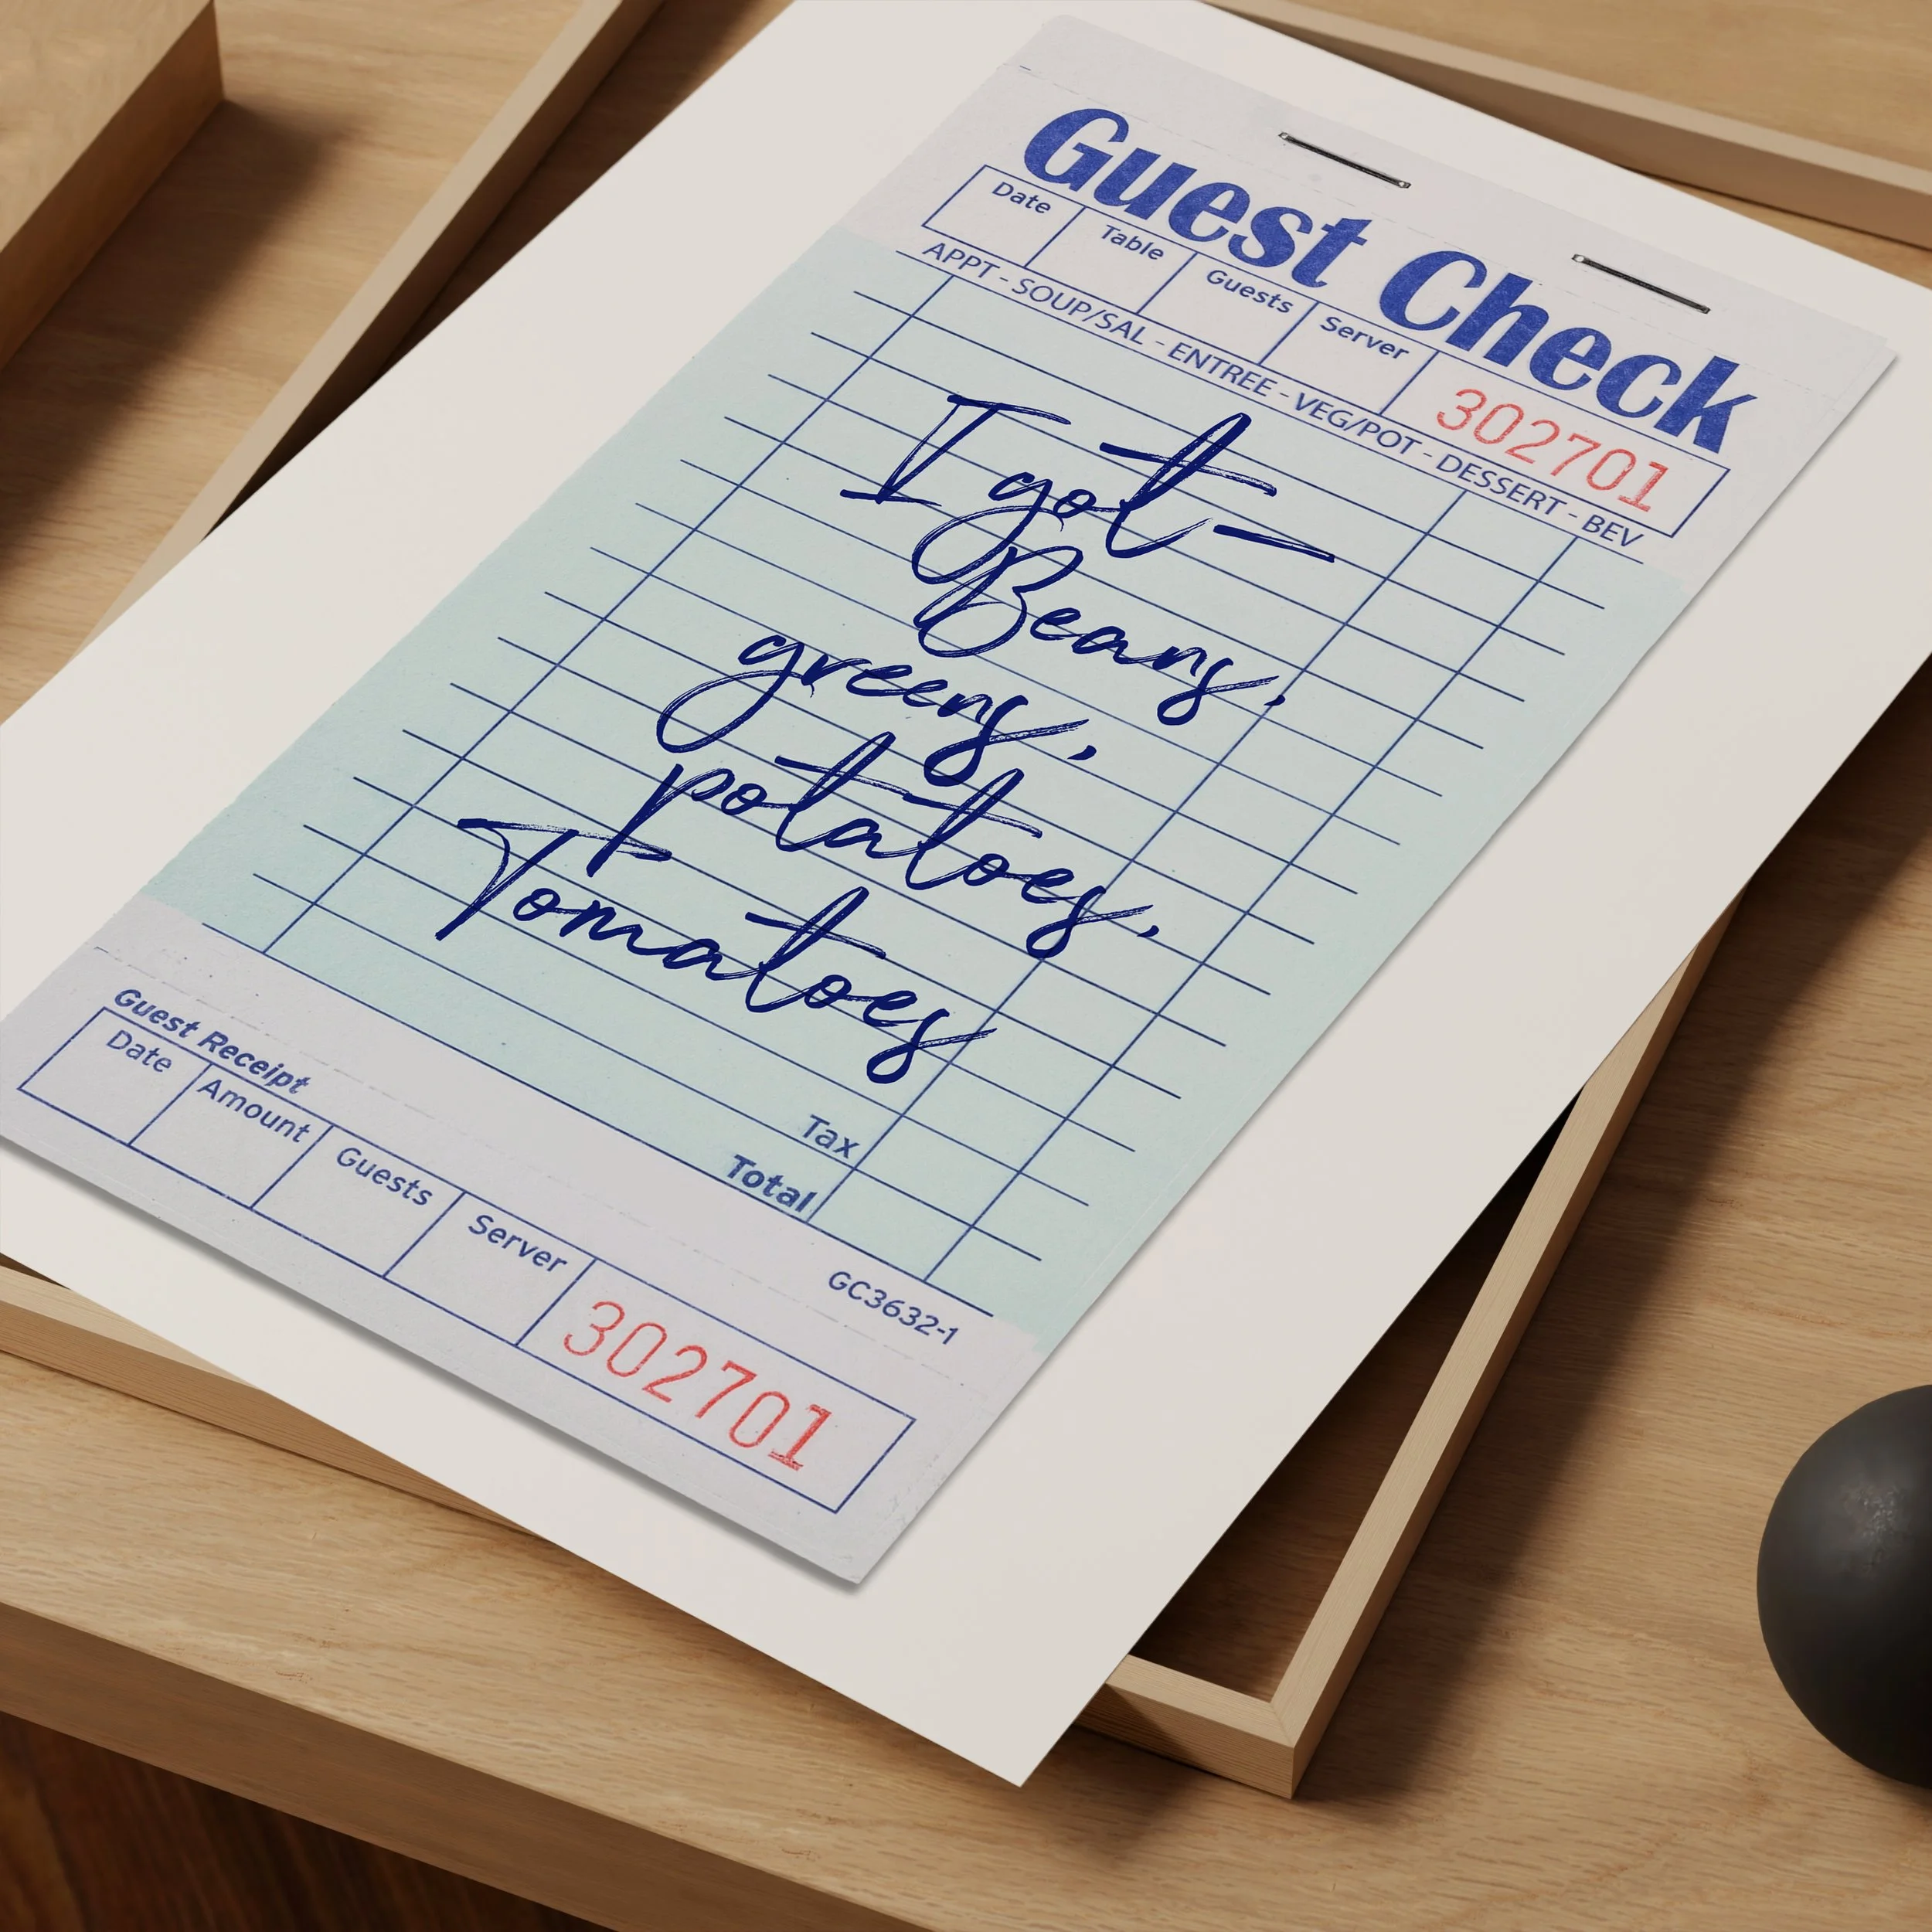 Guest Check
Date Table Guests Server 302701
APPT - SOUP/SAL - ENTREE - VEG/POT - DESSERT - BEV
I got—
Beans,
greens,
potatoes,
Tomatoes
Tax
Total
GC3632-1
Guest Receipt
Date Amount Guests Server 302701